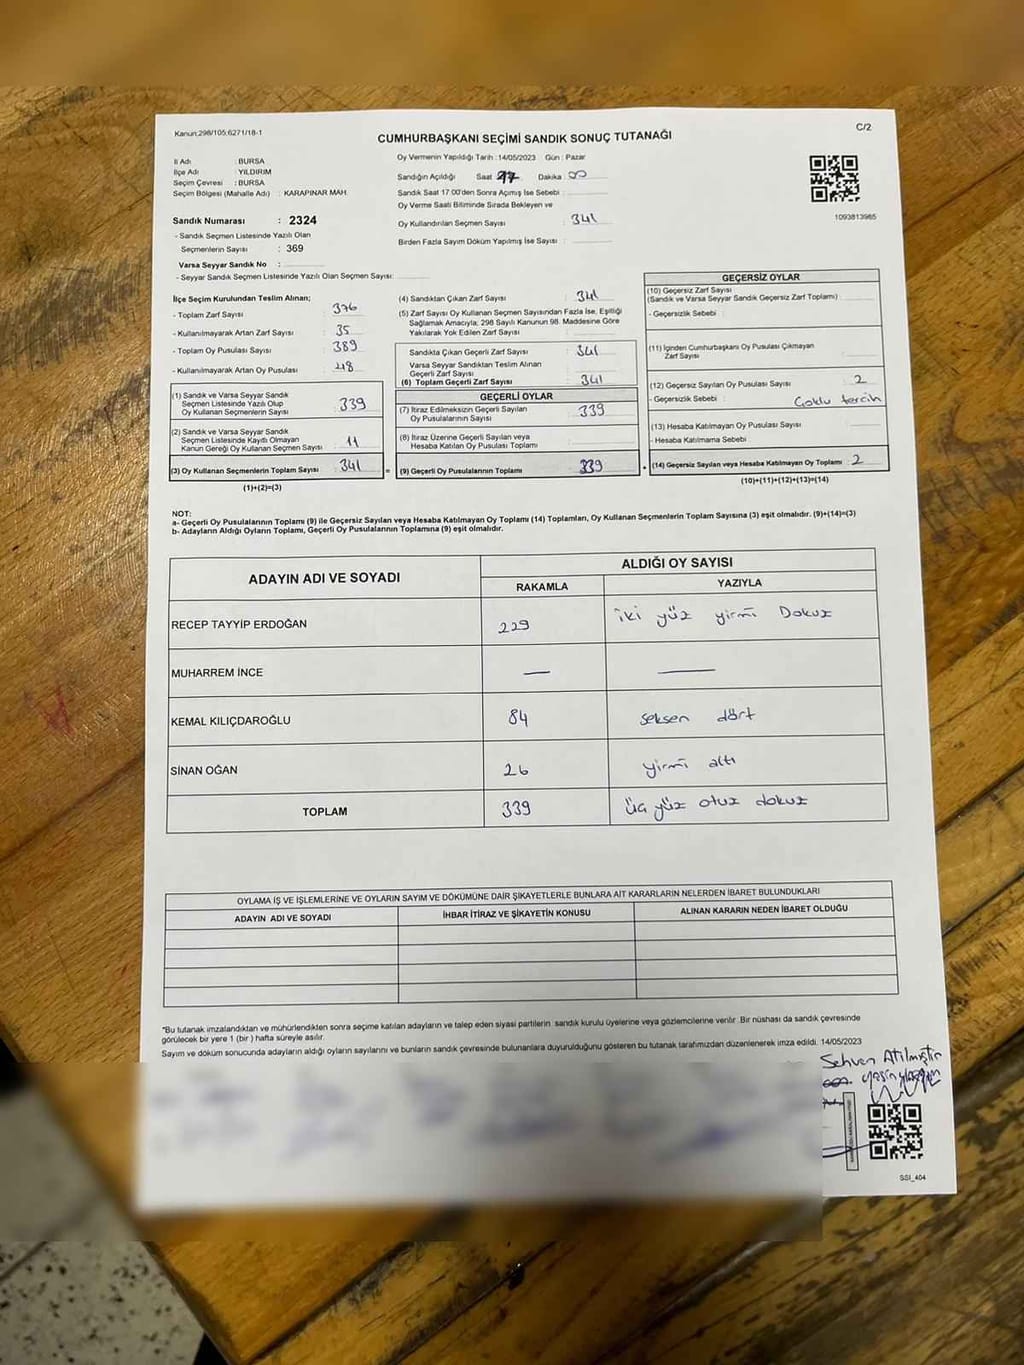 Kanun;298/105;6271/18-1
C/2
CUMHURBAŞKANI SEÇİMİ SANDIK SONUÇ TUTANAĞI
İl Adı : BURSA
İlçe Adı : YILDIRIM
Seçim Çevresi : BURSA
Seçim Bölgesi (Mahalle Adı) : KARAPINAR MAH.
Sandık Numarası : 2324
- Sandık Seçmen Listesinde Yazılı Olan
Seçmenlerin Sayısı : 369
Varsa Seyyar Sandık No :
- Seyyar Sandık Seçmen Listesinde Yazılı Olan Seçmen Sayısı:
Oy Vermenin Yapıldığı Tarih :14/05/2023 Gün : Pazar
Sandığın Açıldığı Saat 17 Dakika : 00
Sandık Saat 17.00'den Sonra Açılmış İse Sebebi :
Oy Verme Saati Bitiminde Sırada Bekleyen ve
Oy Kullandırılan Seçmen Sayısı : 341
Birden Fazla Sayım Döküm Yapılmış İse Sayısı :
1093813965
İlçe Seçim Kurulundan Teslim Alınan;
- Toplam Zarf Sayısı : 376
- Kullanılmayarak Artan Zarf Sayısı : 35
- Toplam Oy Pusulası Sayısı : 389
- Kullanılmayarak Artan Oy Pusulası : 48
(1) Sandık ve Varsa Seyyar Sandık
Seçmen Listesinde Yazılı Olup
Oy Kullanan Seçmenlerin Sayısı 339
(2) Sandık ve Varsa Seyyar Sandık
Seçmen Listesinde Kaydı Olmayan
Kanun Gereği Oy Kullanan Seçmen Sayısı 11
(3) Oy Kullanan Seçmenlerin Toplam Sayısı 341
(1)+(2)=(3)
(4) Sandıktan Çıkan Zarf Sayısı : 341
(5) Zarf Sayısı Oy Kullanan Seçmen Sayısından Fazla İse, Eşitliği
Sağlamak Amacıyla; 298 Sayılı Kanunun 98. Maddesine Göre
Yakılarak Yok Edilen Zarf Sayısı
Sandıkta Çıkan Geçerli Zarf Sayısı : 341
Varsa Seyyar Sandıktan Teslim Alınan
Geçerli Zarf Sayısı
(6) Toplam Geçerli Zarf Sayısı : 341
GEÇERLİ OYLAR
(7) İtiraz Edilmeksizin Geçerli Sayılan
Oy Pusulalarının Sayısı : 339
(8) İtiraz Üzerine Geçerli Sayılan veya
Hesaba Katılan Oy Pusulası Toplamı
(9) Geçerli Oy Pusulalarının Toplamı 339
=
GEÇERSİZ OYLAR
(10) Geçersiz Zarf Sayısı
(Sandık ve Varsa Seyyar Sandık Geçersiz Zarf Toplamı) :
- Geçersizlik Sebebi :
(11) İçinden Cumhurbaşkanı Oy Pusulası Çıkmayan
Zarf Sayısı
(12) Geçersiz Sayılan Oy Pusulası Sayısı : 2
- Geçersizlik Sebebi : Çoklu tercih
(13) Hesaba Katılmayan Oy Pusulası Sayısı :
- Hesaba Katılmama Sebebi
+
(14) Geçersiz Sayılan veya Hesaba Katılmayan Oy Toplamı : 2
(10)+(11)+(12)+(13)=(14)
NOT:
a- Geçerli Oy Pusulalarının Toplamı (9) ile Geçersiz Sayılan veya Hesaba Katılmayan Oy Toplamı (14) Toplamları, Oy Kullanan Seçmenlerin Toplam Sayısına (3) eşit olmalıdır. (9)+(14)=(3)
b- Adayların Aldığı Oyların Toplamı, Geçerli Oy Pusulalarının Toplamına (9) eşit olmalıdır.
ADAYIN ADI VE SOYADI ALDIĞI OY SAYISI
RAKAMLA YAZIYLA
RECEP TAYYİP ERDOĞAN 229 iki yüz yirmi Dokuz
MUHARREM İNCE — —
KEMAL KILIÇDAROĞLU 84 seksen dört
SİNAN OĞAN 26 yirmi altı
TOPLAM 339 üç yüz otuz dokuz
OYLAMA İŞ VE İŞLEMLERİNE VE OYLARIN SAYIM VE DÖKÜMÜNE DAİR ŞİKAYETLERLE BUNLARA AİT KARARLARIN NELERDEN İBARET BULUNDUKLARI
ADAYIN ADI VE SOYADI İHBAR İTİRAZ VE ŞİKAYETİN KONUSU ALINAN KARARIN NEDEN İBARET OLDUĞU
*Bu tutanak imzalandıktan ve mühürlendikten sonra seçime katılan adayların ve talep eden siyasi partilerin sandık kurulu üyelerine veya gözlemcilerine verilir. Bir nüshası da sandık çevresinde
görülecek bir yere 1 (bir) hafta süreyle asılır.
Sayım ve döküm sonucunda adayların aldığı oyların sayılarını ve bunların sandık çevresinde bulunanlara duyurulduğunu gösteren bu tutanak tarafımızdan düzenlenerek imza edildi. 14/05/2023
Sehven Atılmıştır
SSI_404